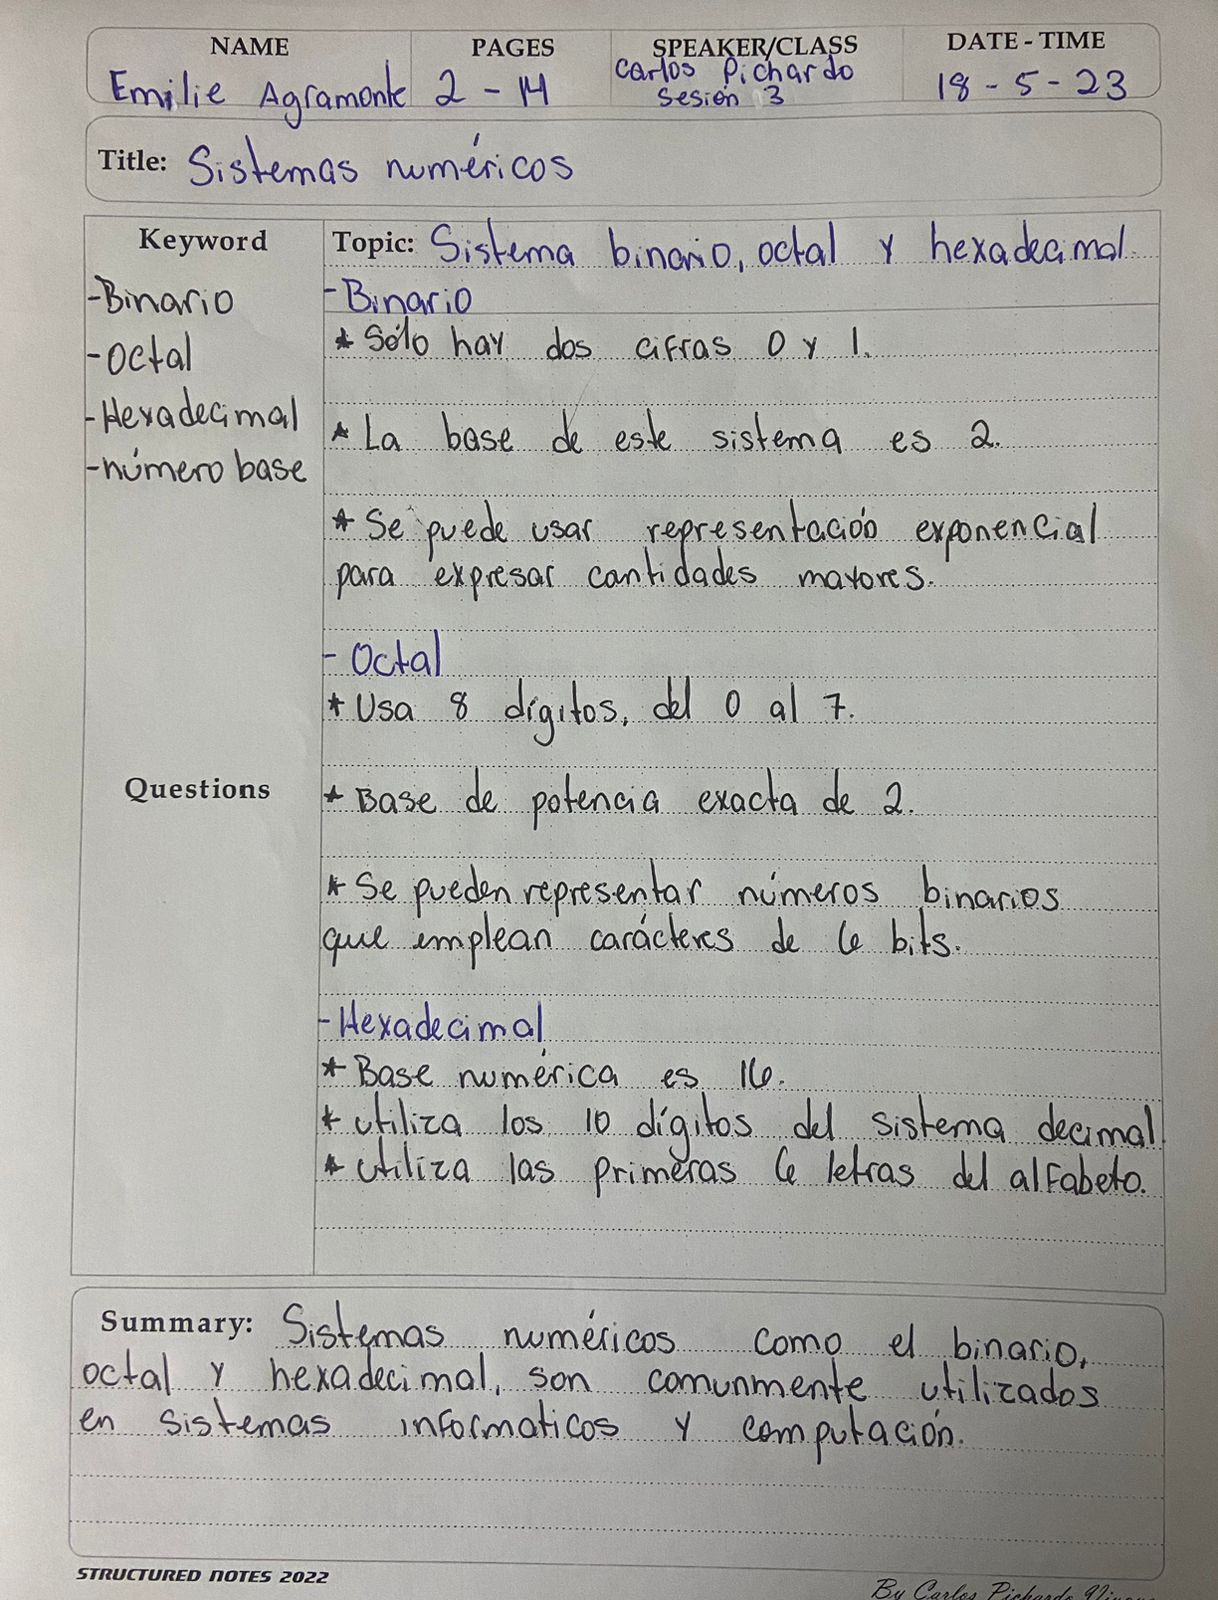 NAME PAGES SPEAKER/CLASS DATE - TIME
Emilie Agramonte 2 - 14 Carlos Pichardo Sesión 3 18 - 5 - 23
Title: Sistemas numéricos
Keyword
-Binario
-Octal
-Hexadecimal
-número base
Questions
Topic: Sistema binario, octal y hexadecimal.
- Binario
* Sólo hay dos cifras 0 y 1.
* La base de este sistema es 2.
* Se puede usar representación exponencial
para expresar cantidades mayores.
- Octal
* Usa 8 dígitos, del 0 al 7.
* Base de potencia exacta de 2.
* Se pueden representar números binarios
que emplean carácteres de 6 bits.
- Hexadecimal
* Base numérica es 16.
* utiliza los 10 dígitos del sistema decimal.
* utiliza las primeras 6 letras del alfabeto.
Summary: Sistemas numéricos como el binario,
octal y hexadecimal, son comunmente utilizados
en sistemas informaticos y computación.
STRUCTURED NOTES 2022
By Carlos Pichardo